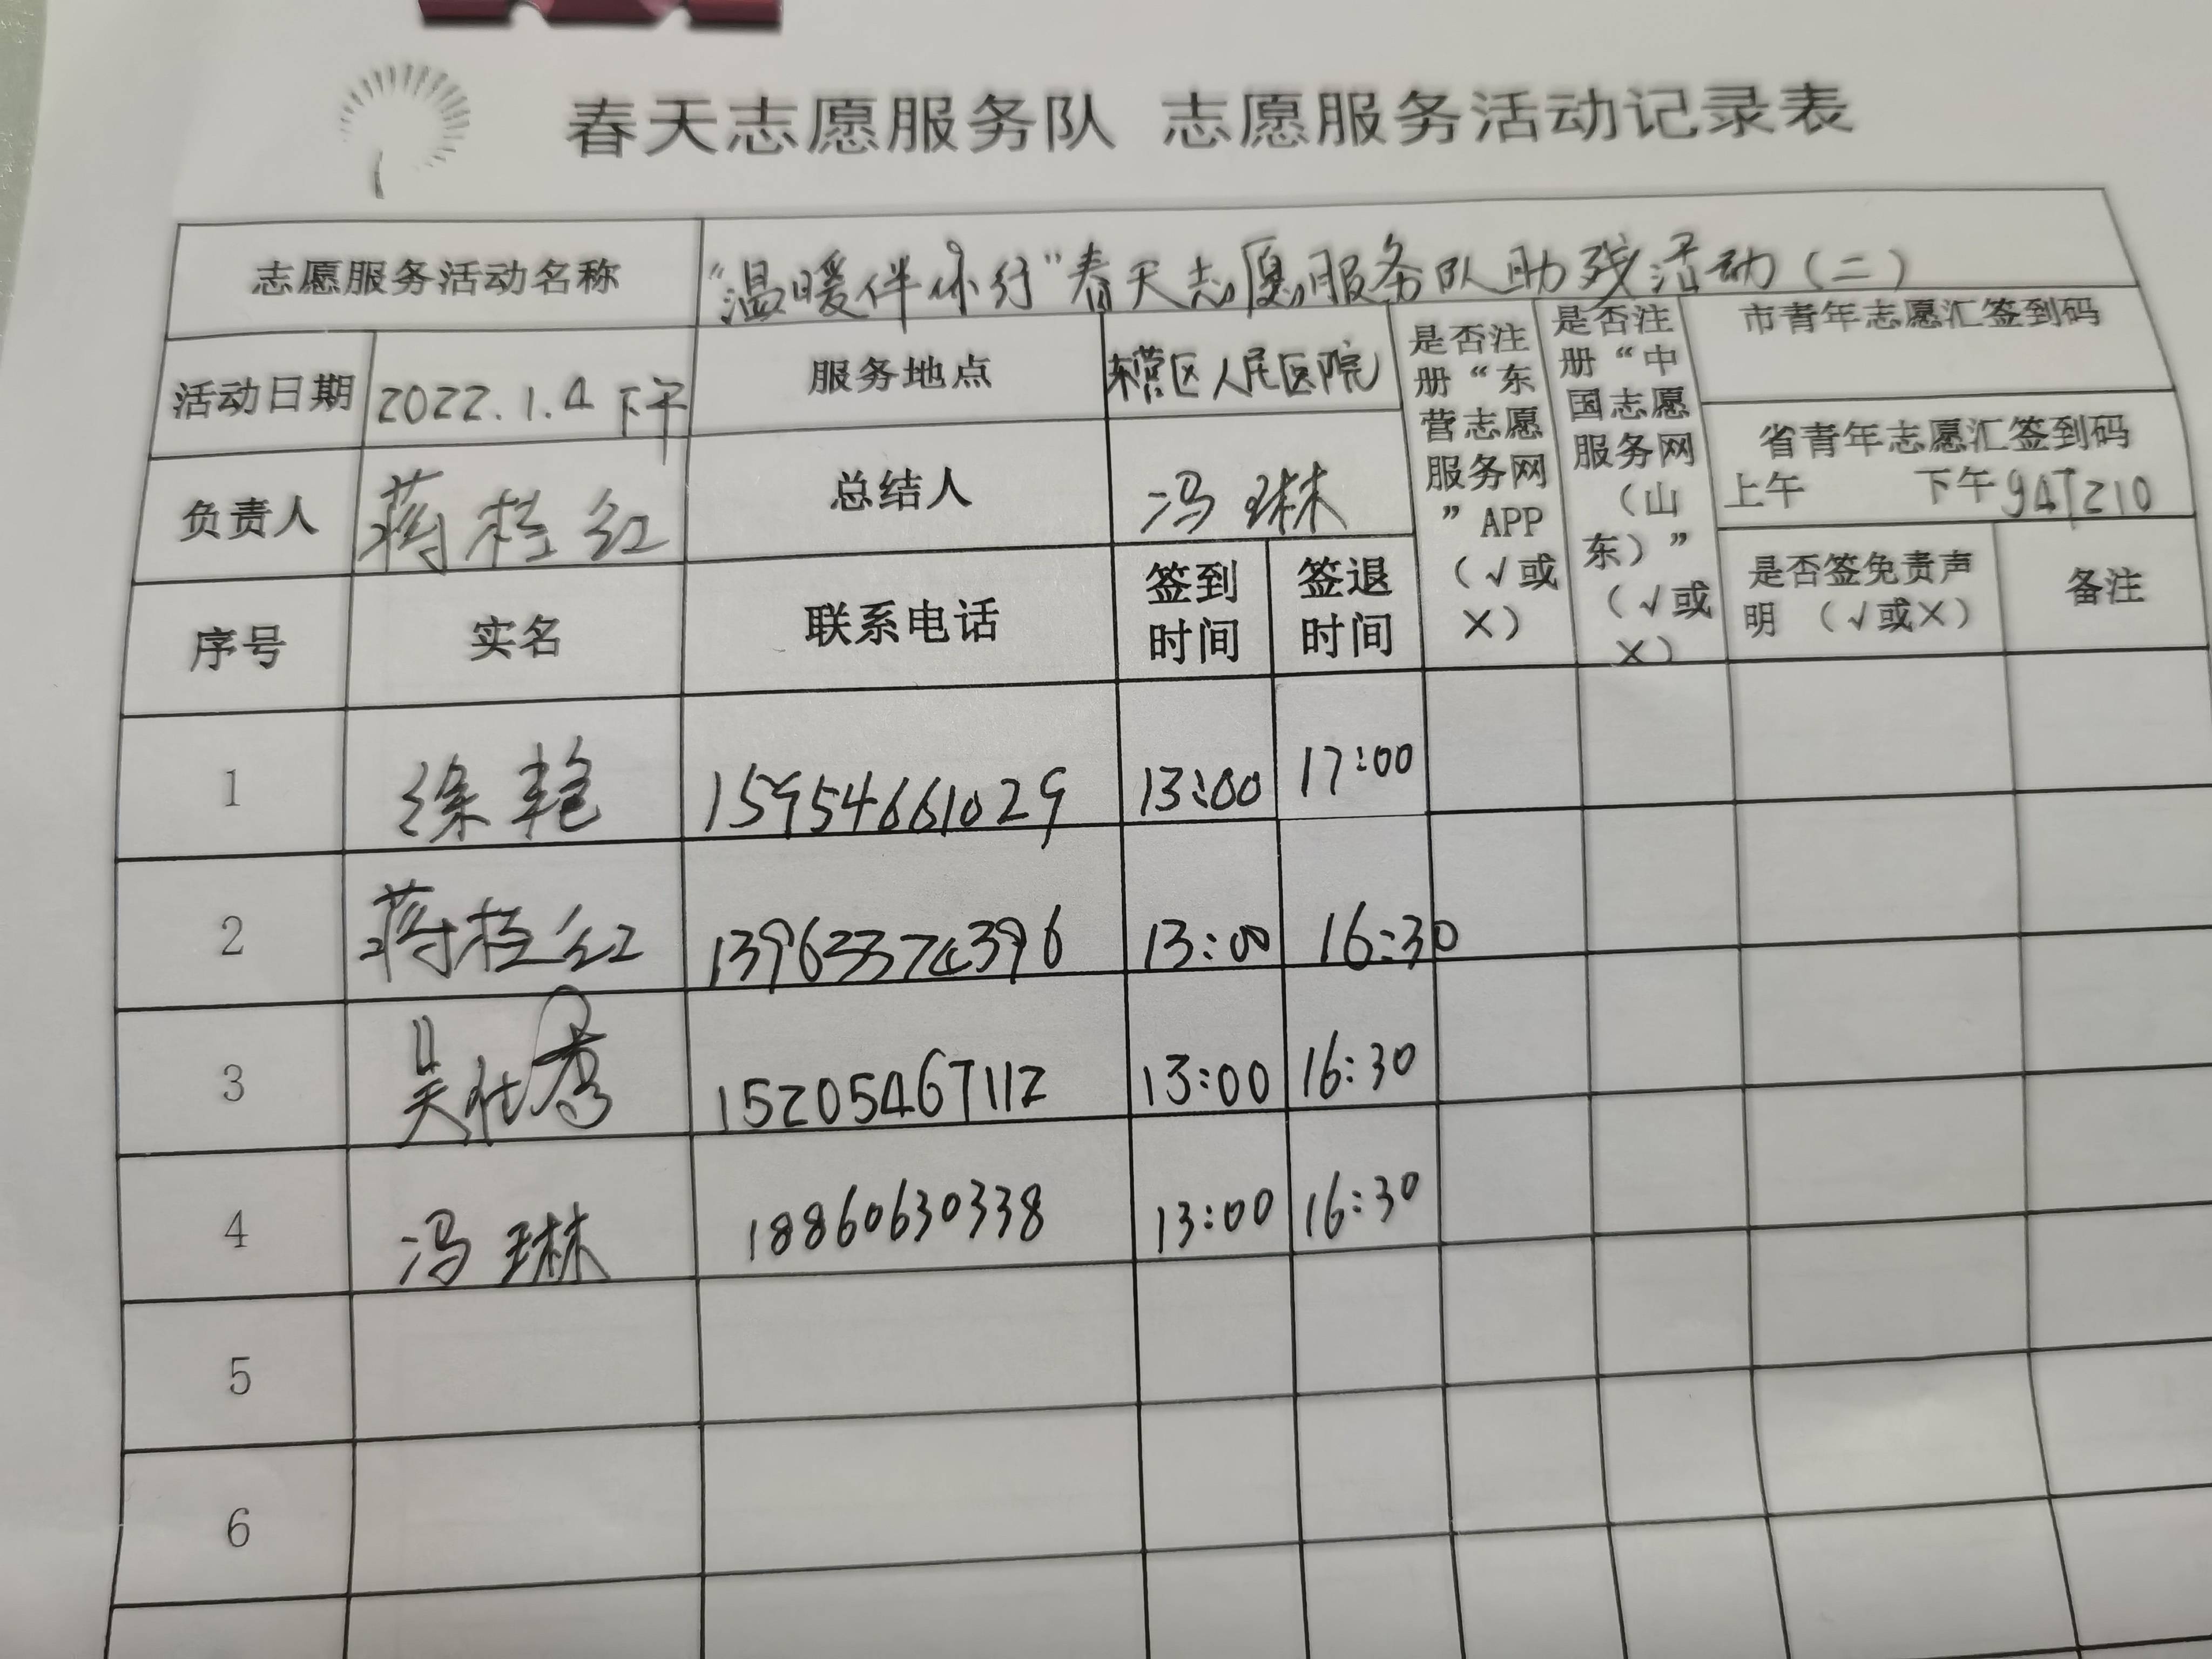 春天志愿服务队 志愿服务活动记录表
志愿服务活动名称 “温暖伴你行”春天志愿服务队助残活动（二）
活动日期 2022.1.4 下午 服务地点 东营区人民医院
是否注册“东营志愿服务网”APP（√或×）
是否注册“中国志愿服务网（山东）”（√或×）
市青年志愿汇签到码
省青年志愿汇签到码
上午 下午 947210
负责人 蒋桂红 总结人 冯琳
序号 实名 联系电话 签到时间 签退时间 是否签免责声明（√或×） 备注
1 徐艳 15954661029 13:00 17:00
2 蒋桂红 13963374396 13:00 16:30
3 吴 秀 15205467112 13:00 16:30
4 冯琳 18860630338 13:00 16:30
5
6